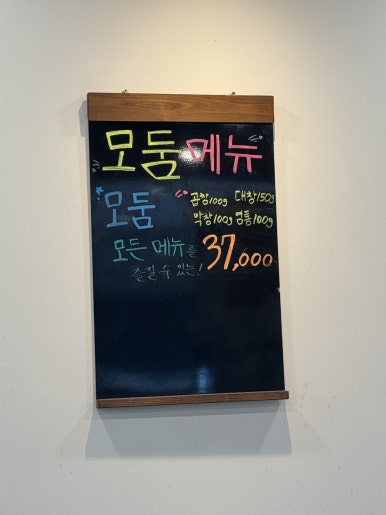 모둠 메뉴
모둠 곱창100g 대창150g
막창100g 염통100g
모든 메뉴를 37,000
즐길 수 있는!